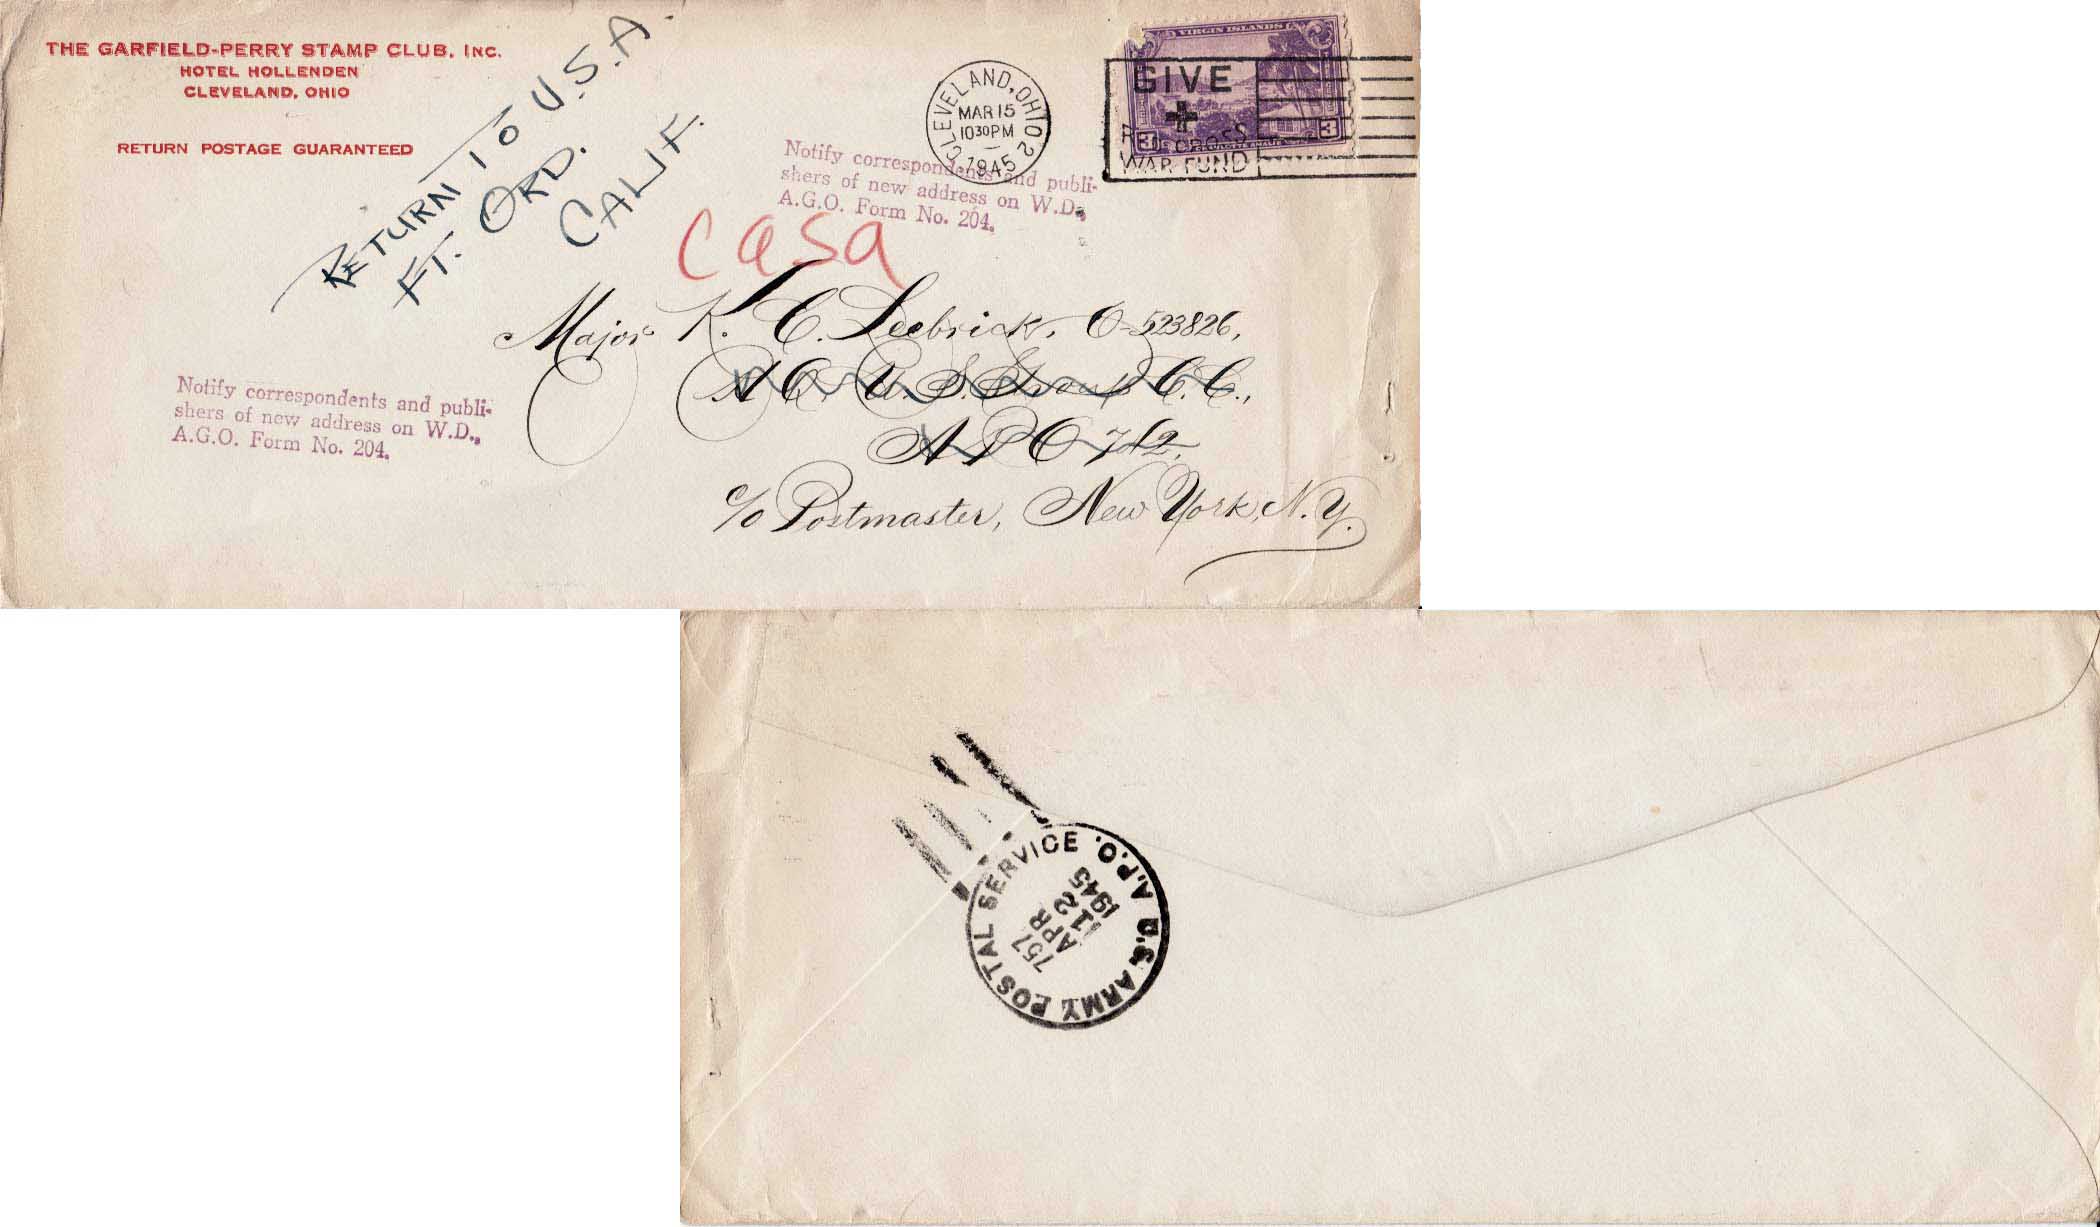 THE GARFIELD-PERRY STAMP CLUB, INC.
HOTEL HOLLENDEN
CLEVELAND, OHIO
RETURN POSTAGE GUARANTEED
RETURN TO U.S.A.
FT. ORD.
CALIF.
CLEVELAND, OHIO 2
MAR 15
10 30 PM
1945
VIRGIN ISLANDS
3 3
GIVE
RED CROSS
WAR FUND
Notify correspondents and publi-
shers of new address on W.D.,
A.G.O. Form No. 204.
casa
Major K. C. Leebrick, O-523826,
U. S. Group C. C.,
A P O 742,
c/o Postmaster, New York, N. Y.
Notify correspondents and publi-
shers of new address on W.D.,
A.G.O. Form No. 204.
U.S. ARMY POSTAL SERVICE A.P.O.
757
APR
12
1945